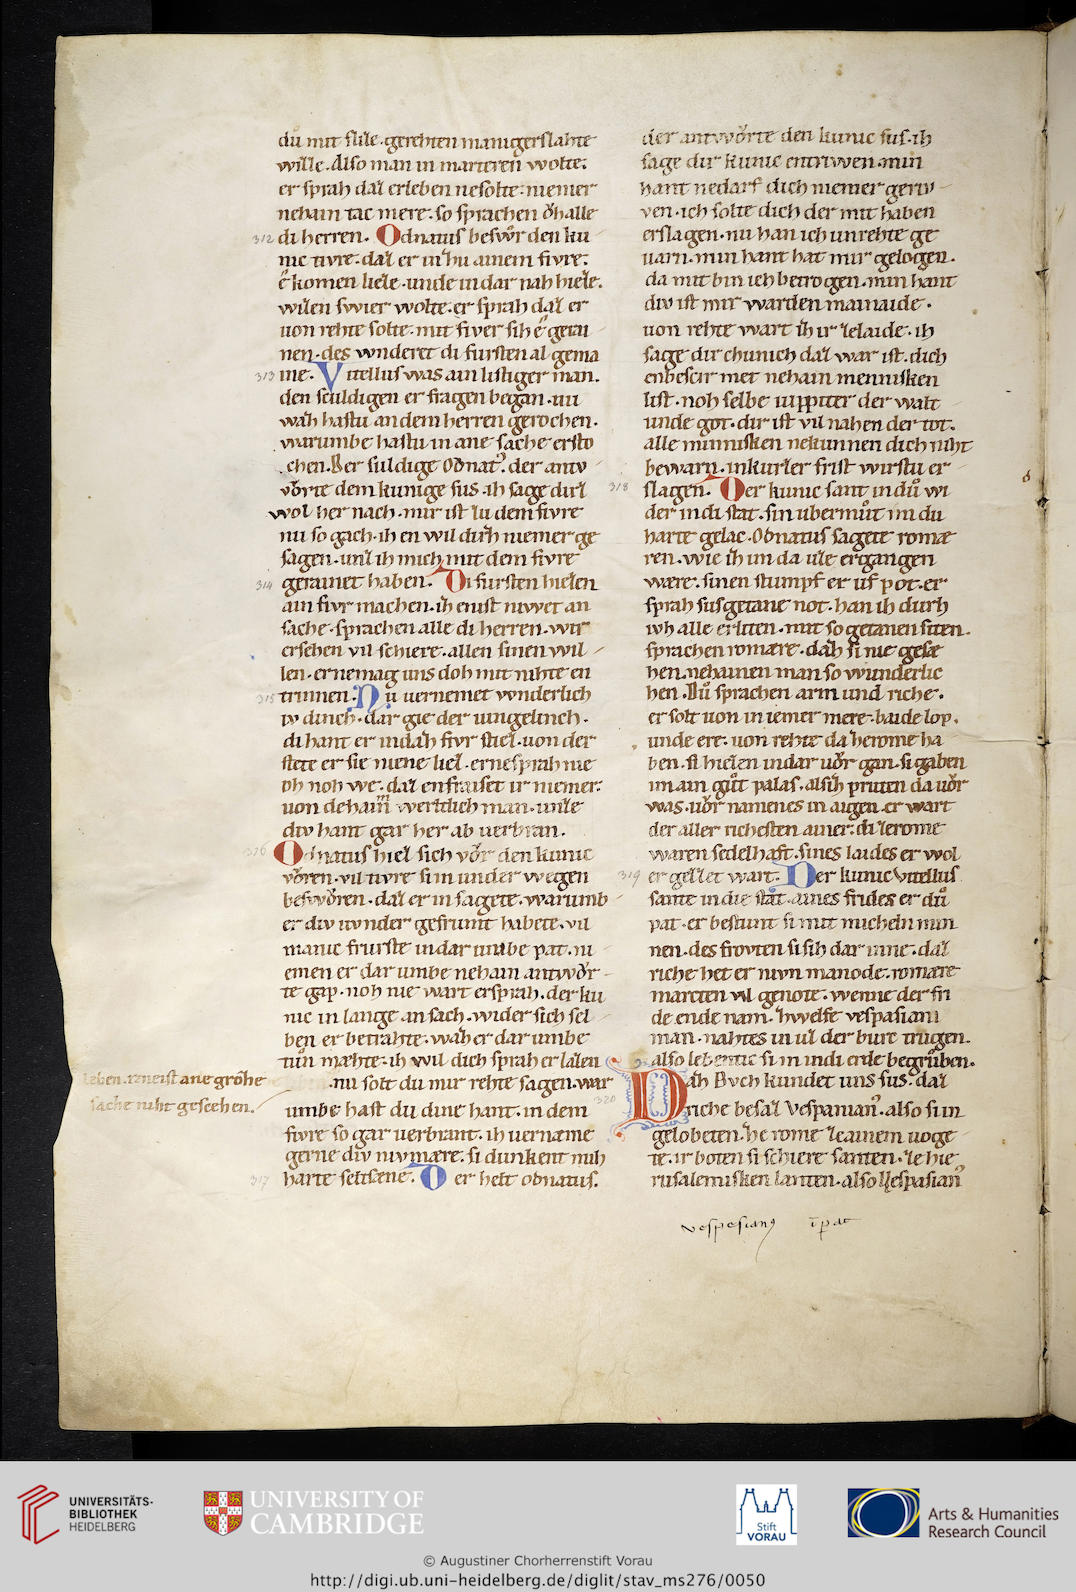 du mit slile. gerehten manigerslahte
wille. Also man in marteren wolte.
er sprah daz erleben nesolte. niemer
nehain tac mere. so sprachen dh alle
312 di herren. Odnatus beswor den ku
nic tivre. daz er in hu ainem fivre.
e komen lieze. unde in dar nah hieze.
wizen swier wolte. er sprah daz er
uon rehte solte. mit fiver sih e gerai
nen. des wnderet di fursten al gema
313 ine. Vitellus was ain listiger man.
den sculdigen er fragen began. nu
wah hastu an dem herren gerochen.
warumbe hastu in ane sache ersto
chen. Der suldige Odnat9. der antw
vorte dem kunige sus. ih sage dirz
wol her nach. mir ist zu dem fivre
nu so gach. ih en wil dirh niemer ge
sagen. unz ih mich mit dem fivre
314 gerainet haben. Di fursten hiezen
ain fivr machen. ih enist niwet an
sache. sprachen alle di herren. wir
ersehen vil schiere. allen sinen wil
len. er nemag uns doh mit nihte en
315 trinnen. Nu uernemet wnderlich
iv dinch. dar gie der iungelinch.
di hant er in dah fivr stiez. uon der
stete er sie niene liez. er nesprah nie
oh noh we. daz enfraiset ir niemer.
uon dehaim werltlich man. unze
div hant gar her ab uerbran.
316 Odnatus hiez sich vor den kunic
voren. vil tivre si in under wegen
besworen. daz er in sagete. warumb
er div wnder gefrumt habete. vil
manic frurste in dar umbe pat. ni
emen er dar umbe nehain antwor
te gap. noh nie wart er sprah. der ku
nic in lange an sach. wider sich sel
ben er betrahte. wah er dar umbe
tun mahte. ih wil dich sprah er lazen
leben. izneist ane grohe
sache niht gescehen.
nu solt du mir rehte sagen. war
umbe hast du dine hant. in dem
fivre so gar uerbrant. ih uername
gerne div niwmære. si dunkent mih
317 harte seltsæne. Der helt odnatus.
der antwvorte den kunic sus. ih
sage dir kunic entriwen. min
hant nedarf dich niemer geriv
ven. ich solte dich der mit haben
erslagen. nu han ich unrehte ge
uarn. min hant hat mir gelogen.
da mit bin ich betrogen. min hant
div ist mir warden mainaide.
uon rehte wart ih ir zelaide. ih
sage dir chunich daz war ist. dich
enbescir met nehain mennisken
list. noh selbe iuppiter der walt
unde got. dir ist vil nahen der tot.
alle minnisken nekunnen dich niht
bewarn. in kurzer frist wirstu er
318 slagen. Der kunic sant in du wi
der in di stat. sin ubermut im du
harte gelac. Odnatus sagete romæ
ren. wie ih im da uile ergangen
wære. sinen stumpf er uf pot. er
sprah susgetane not. han ih durh
iwh alle erliten. mit so getanen siten.
sprachen romære. dah si nie gesæ
hen. nehainen man so wunderlic
hen. Du sprachen arm und riche.
er solt uon in iemer mere. baide lop.
unde ere. uon rehte da herome ha
ben. si hiezen in dar vor gan. si gaben
im ain gut palas. alsih pruten da vor
was. vor namenes in aigen. er wart
der aller richesten ainer. di zerome
waren sedelhaft. sines laides er wol
319 ergezzet wart. Der kunic vitellus
sante in die stat. aines frides er du
pat. er bestunt si mit micheln min
nen. des frovten si sih dar inne. daz
riche het er nivn manode. romære
marcten vil genote. wenne der fri
de ende nam. zwelfe vespasiani
man. nahtes in uz der burc trugen.
also lebentic si in in di erde begruben.
320 Dah Buch kundet uns sus. daz
riche besaz Vespanian9. also si im
gelobeten. he rome zeainem uoge
te. ir boten si schiere santen. ze hie
rusalemisken lanten. also Vespasian9
vespesian9 ip̄at
UNIVERSITÄTS-
BIBLIOTHEK
HEIDELBERG
UNIVERSITY OF
CAMBRIDGE
Stift
VORAU
Arts & Humanities
Research Council
© Augustiner Chorherrenstift Vorau
http://digi.ub.uni-heidelberg.de/diglit/stav_ms276/0050